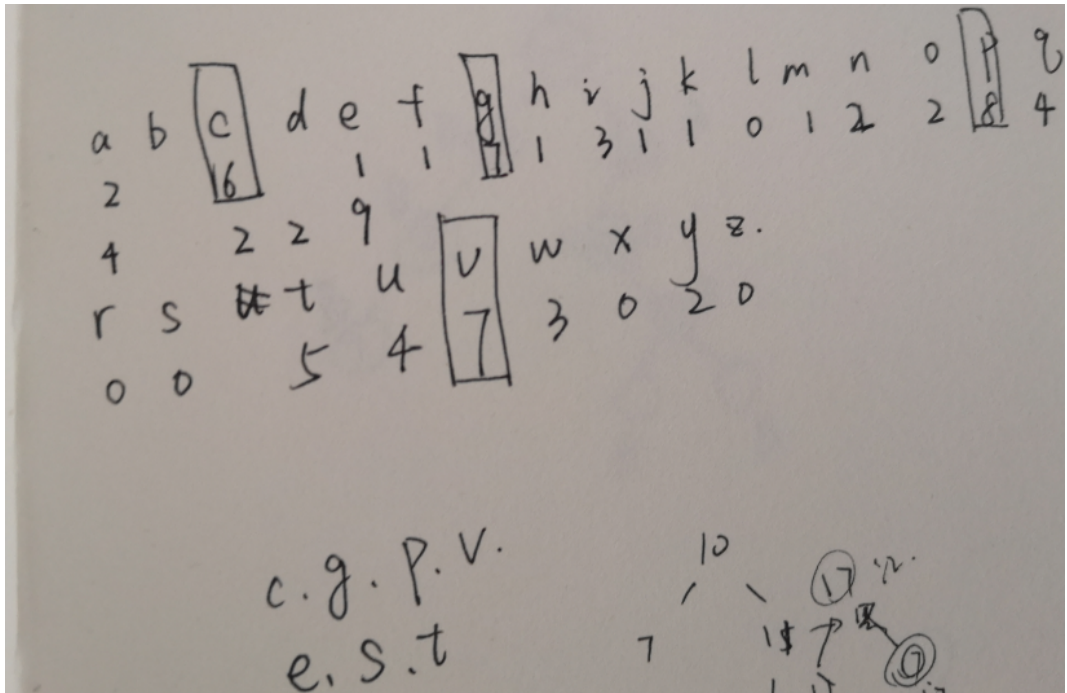 a b c d e f g h i j k l m n o p q
2 6 1 1 7 1 3 1 1 0 1 2 2 8 4
4 2 2 9
r s t u v w x y z.
0 0 5 4 7 3 0 2 0
c. g. p. v.
e. s. t
10
17
7